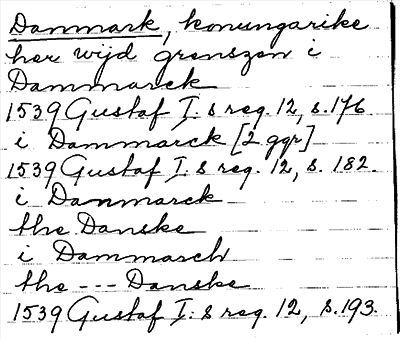 Danmark, konungarike
her wijd grenszen i
Dammarck
1539 Gustaf I:s reg. 12, s. 176
i Dammarck [2 ggr]
1539 Gustaf I:s reg. 12, s. 182.
i Danmarck
the Danske
i Dammarch
the --- Danske
1539 Gustaf I:s reg. 12, s. 193.